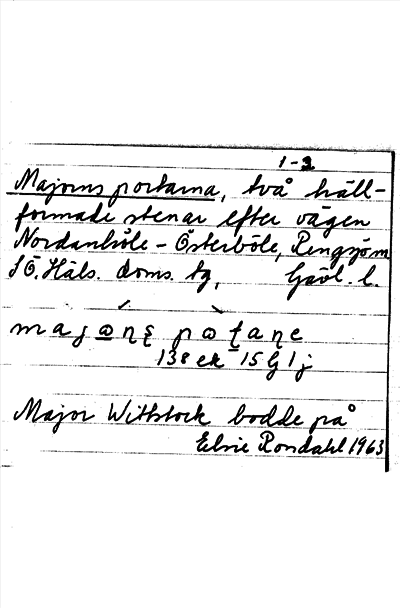 1-2
Majorns portarna, två häll-
formade stenar efter vägen
Nordanböle - Österböle, Rengsjö sn
SÖ. Häls. doms. tg, Gävl. l.
138 ek 15 G 1 j
Major Wittstock bodde på
Elvie Rondahl 1963